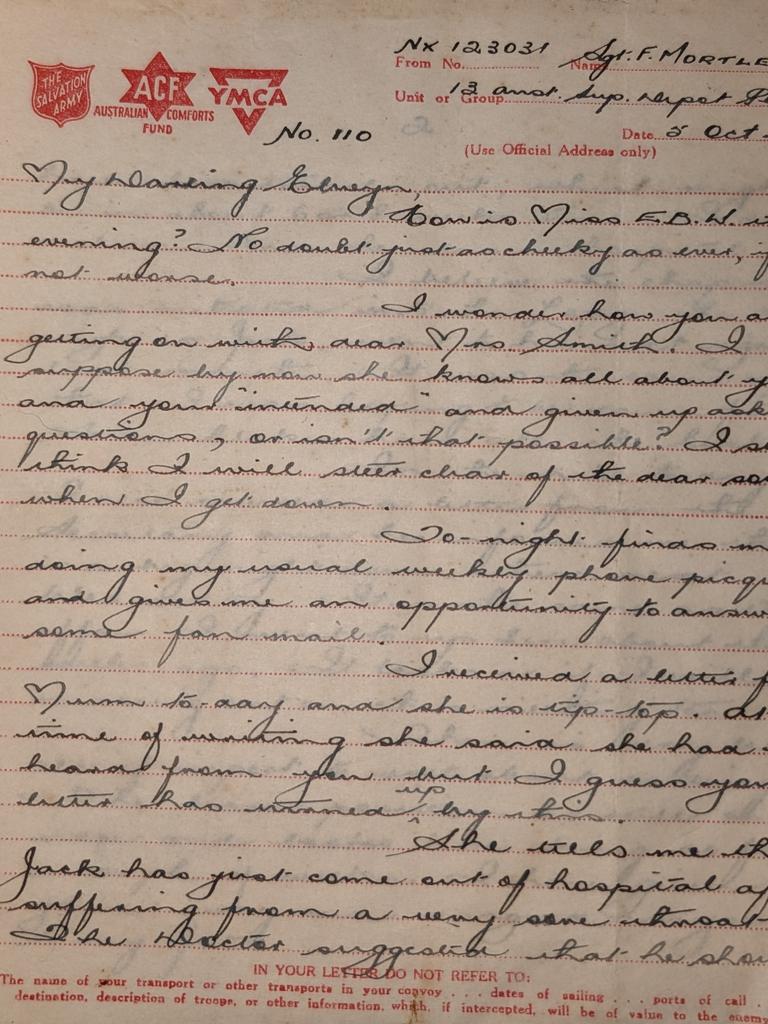 THE SALVATION ARMY
ACF
AUSTRALIAN COMFORTS FUND
YMCA
From No. NX 123031 Name Sgt. F. MORTLE
Unit or Group 13 Aust. Sup. Depot
No. 110
Date 5 Oct.
(Use Official Address only)
My Darling Elwyn,
How is Miss E.B.W.
evening? No doubt just as cheeky as ever, if
not worse.
I wonder how you a
getting on with dear Mrs. Smith. I
suppose by now she knows all about y
and your "intended" and given up ask
questions, or isn't that possible? I s
think I will steer clear of the dear so
when I get down.
To-night finds m
doing my usual weekly phone picq
and gives me an opportunity to answ
some fan mail.
I received a letter f
Mum to-day and she is tip-top. At
time of writing she said she had
heard from you but I guess you
letter has turned up by this.
She tells me th
Jack has just come out of hospital af
suffering from a very sore throat
The Doctor suggested that he shou
IN YOUR LETTER DO NOT REFER TO:
The name of your transport or other transports in your convoy . . . dates of sailing . . . ports of call .
destination, description of troops, or other information, which, if intercepted, will be of value to the enemy